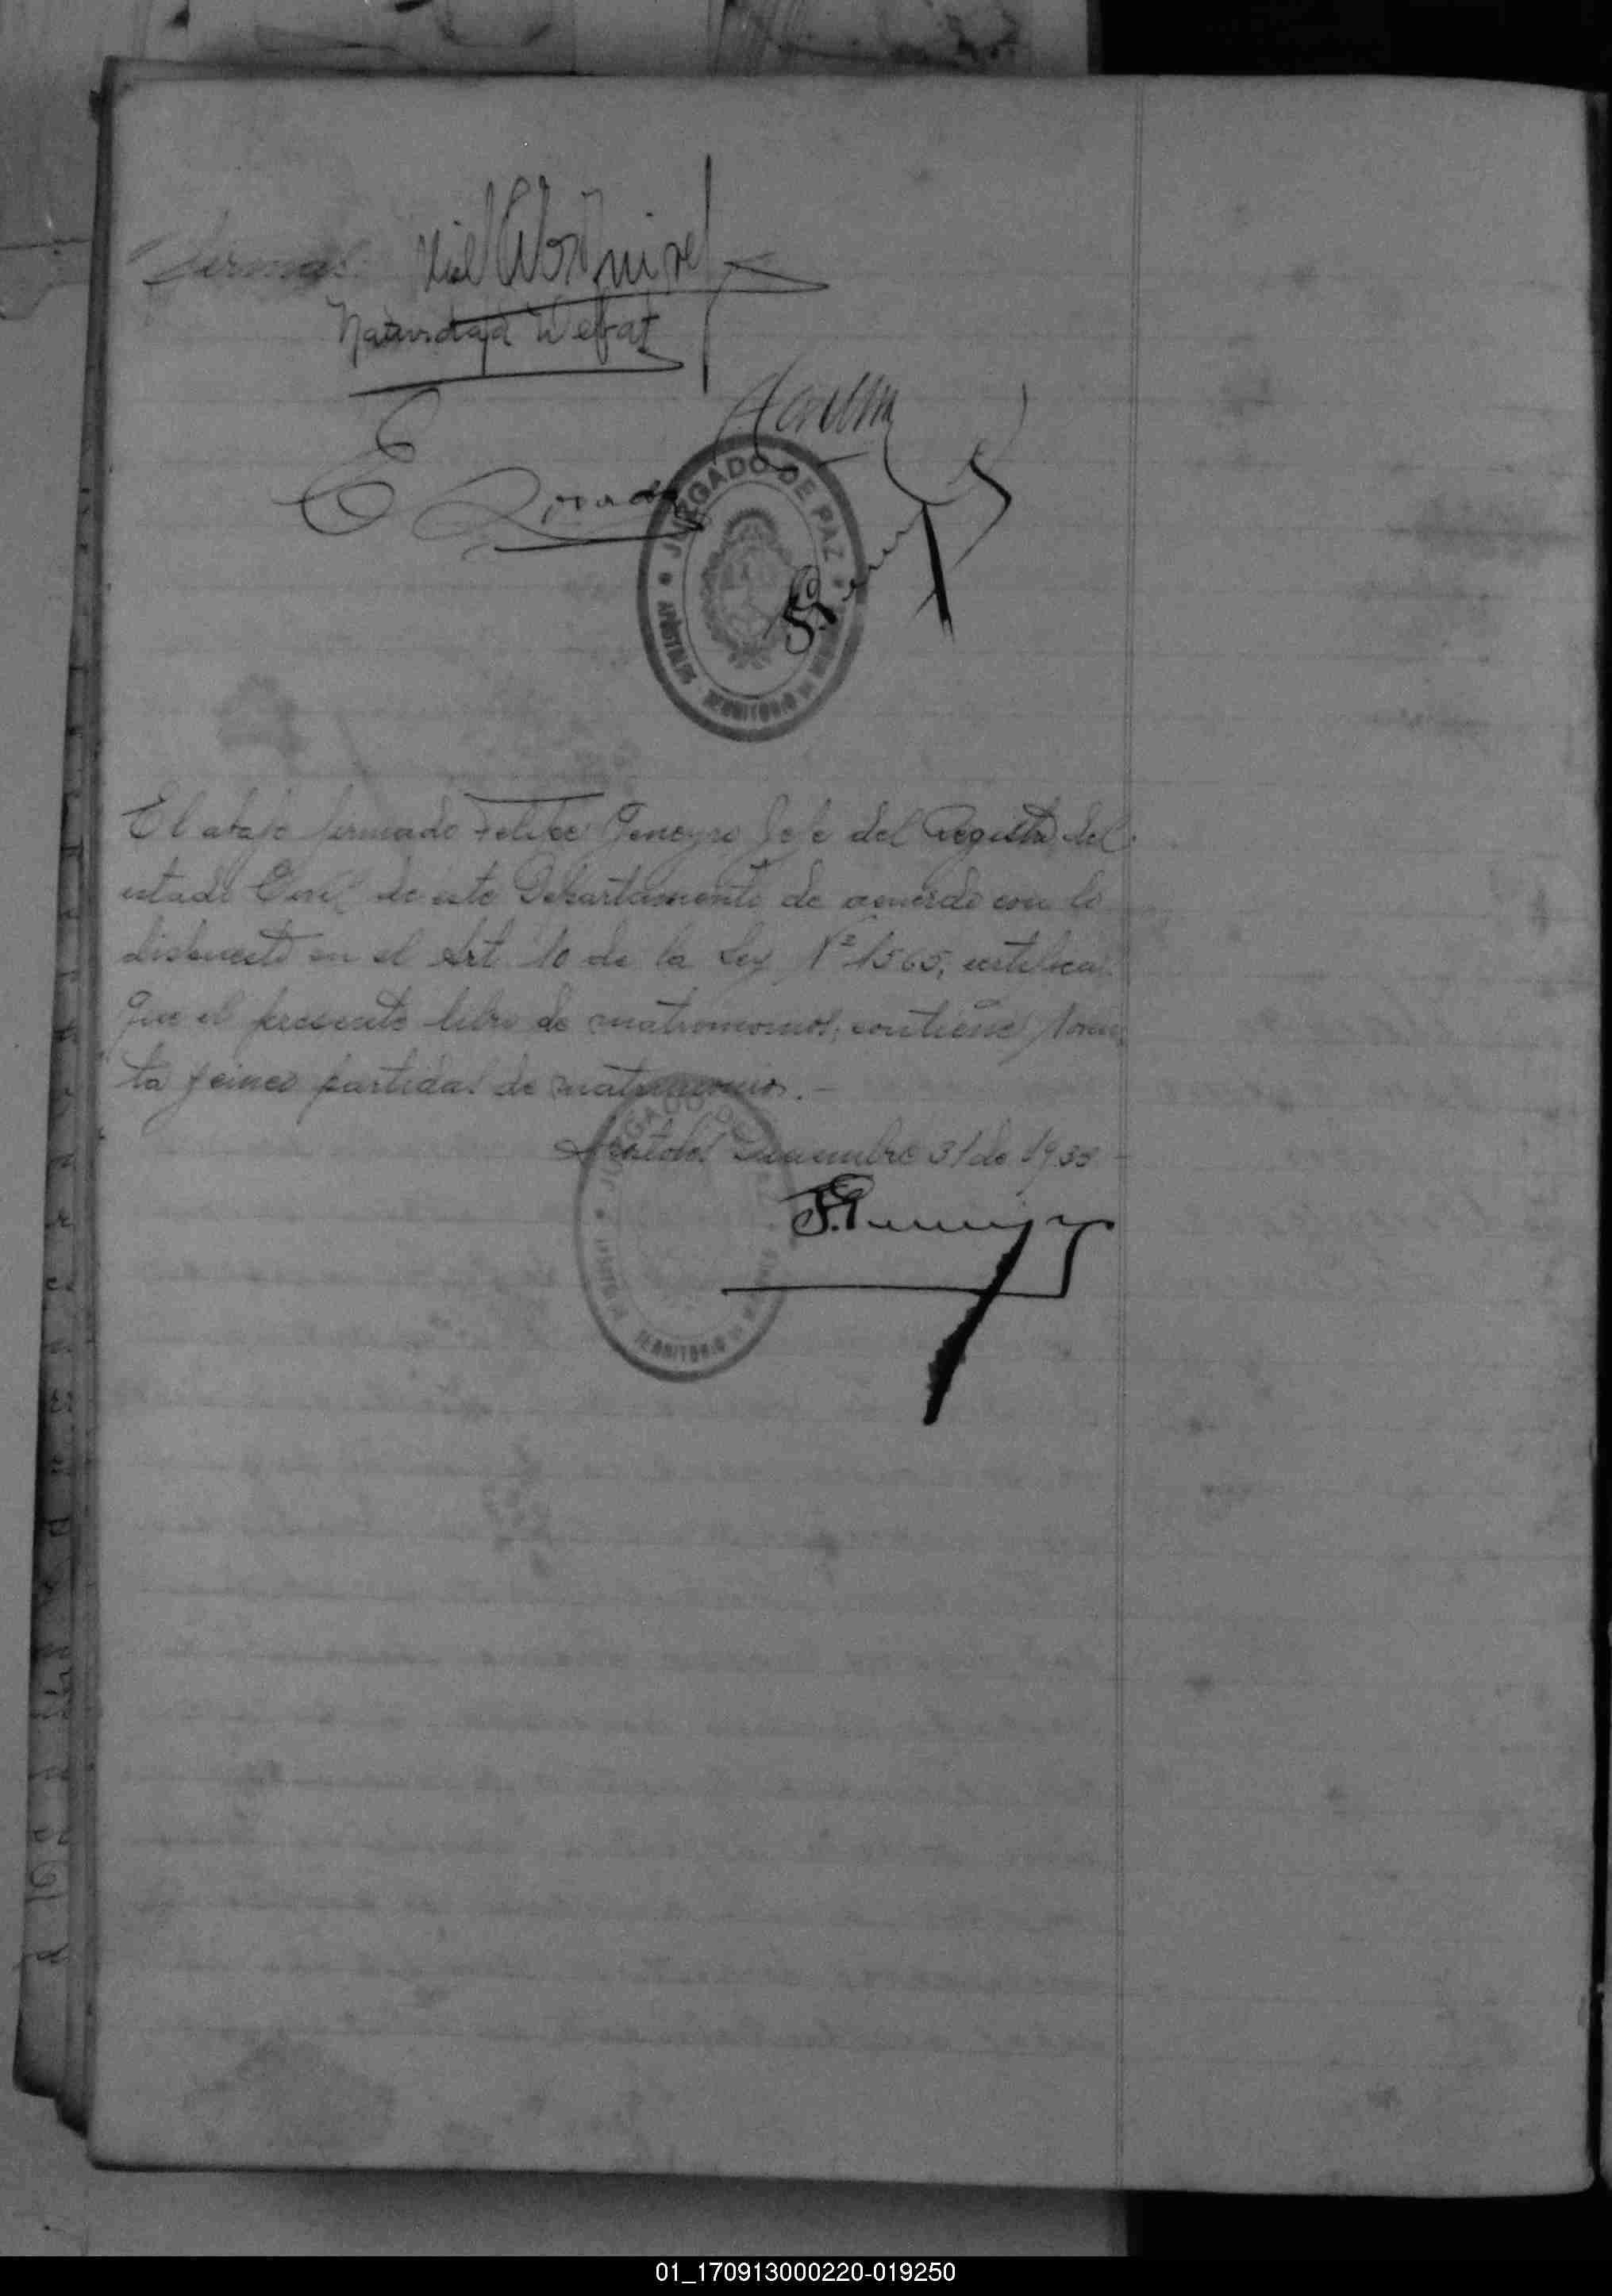 firmas
Natividad Wefat
E
JUZGADO DE PAZ
APÓSTOLES TERRITORIO DE MISIONES
El abajo firmado Felipe Geneyro Jefe del Registro del
estado Civil de este Departamento de acuerdo con lo
dispuesto en el Art 10 de la Ley Nº 1565, certifica:
Que el presente libro de matrimonios, contiene Noven
ta y cinco partidas de matrimonio.-
Apostoles Diciembre 31 de 1938
JUZGADO DE PAZ
TERRITORIO DE MISIONES
01_170913000220-019250